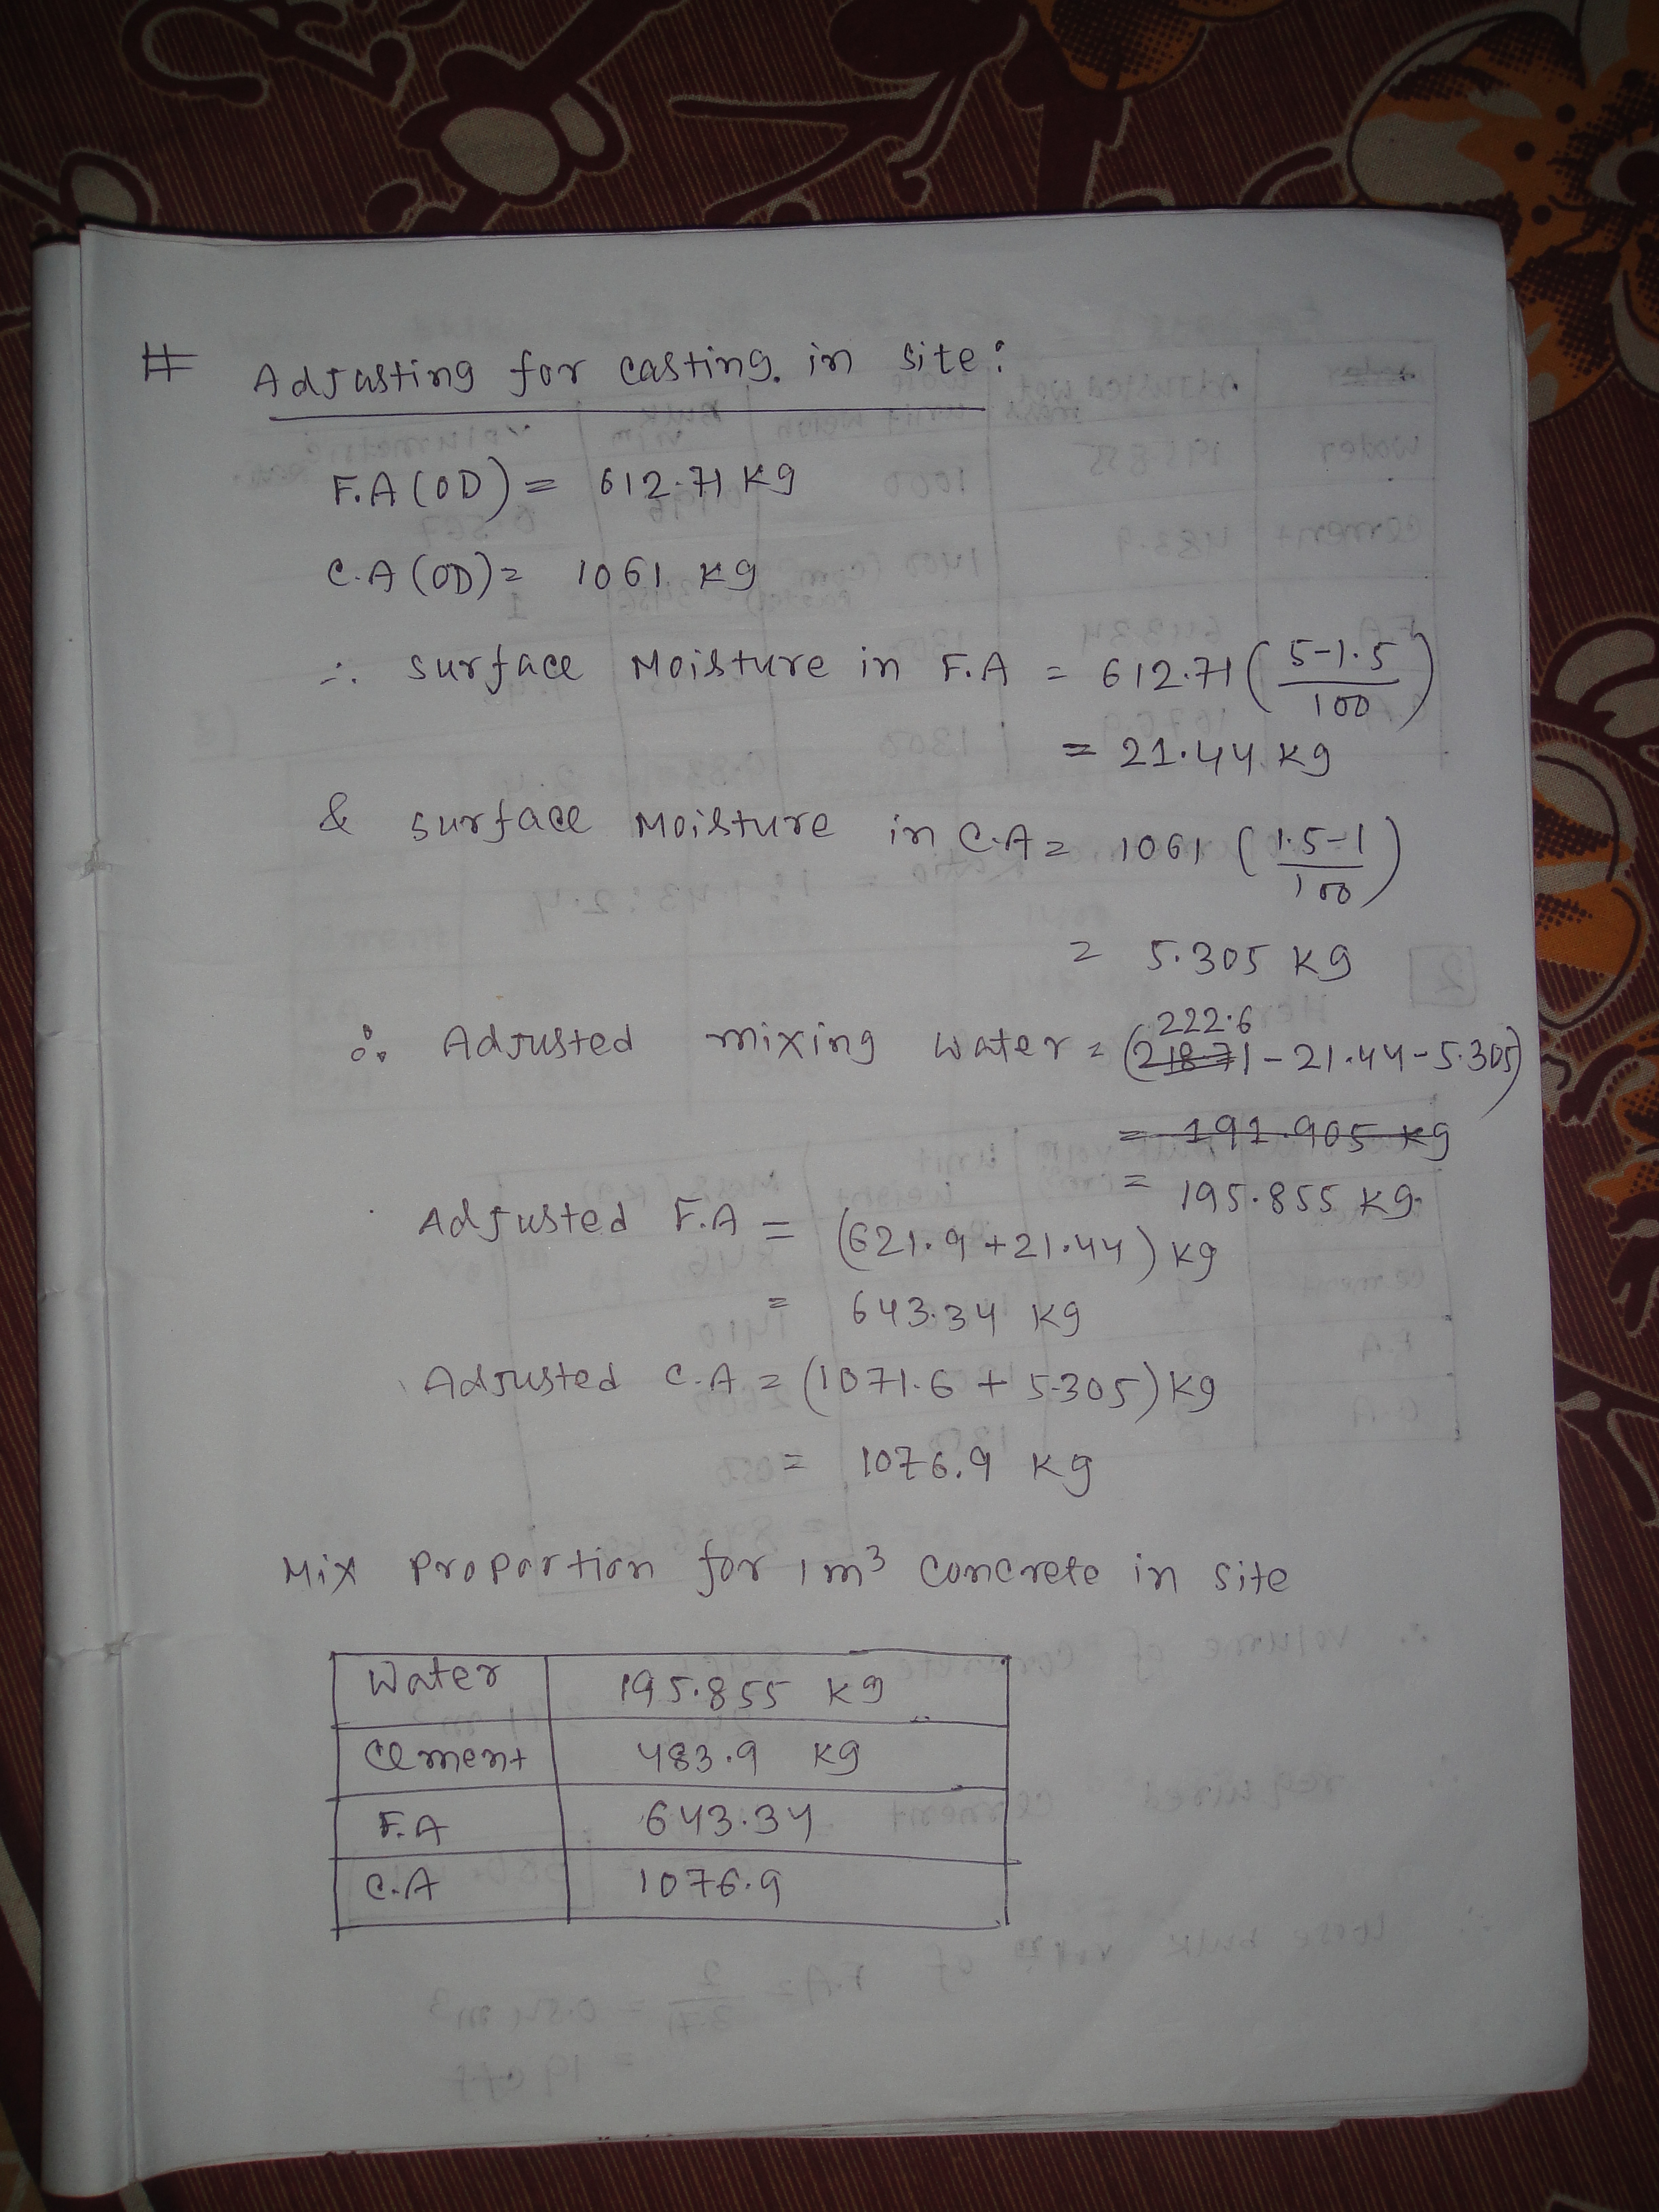 # Adjusting for casting in site:
F.A (OD) = 612.71 kg
C.A (OD) = 1061 kg
∴ surface Moisture in F.A = 612.71 (5-1.5/100)
= 21.44 kg
& surface Moisture in C.A = 1061 (1.5-1/100)
= 5.305 kg
222.6
∴ Adjusted mixing water = (218.71 - 21.44 - 5.305)
= 191.905 kg
= 195.855 kg
Adjusted F.A = (621.9 + 21.44) kg
= 643.34 kg
Adjusted C.A = (1071.6 + 5.305) kg
= 1076.9 kg
Mix Proportion for 1 m³ concrete in site
Water 195.855 kg
Cement 483.9 kg
F.A 643.34
C.A 1076.9